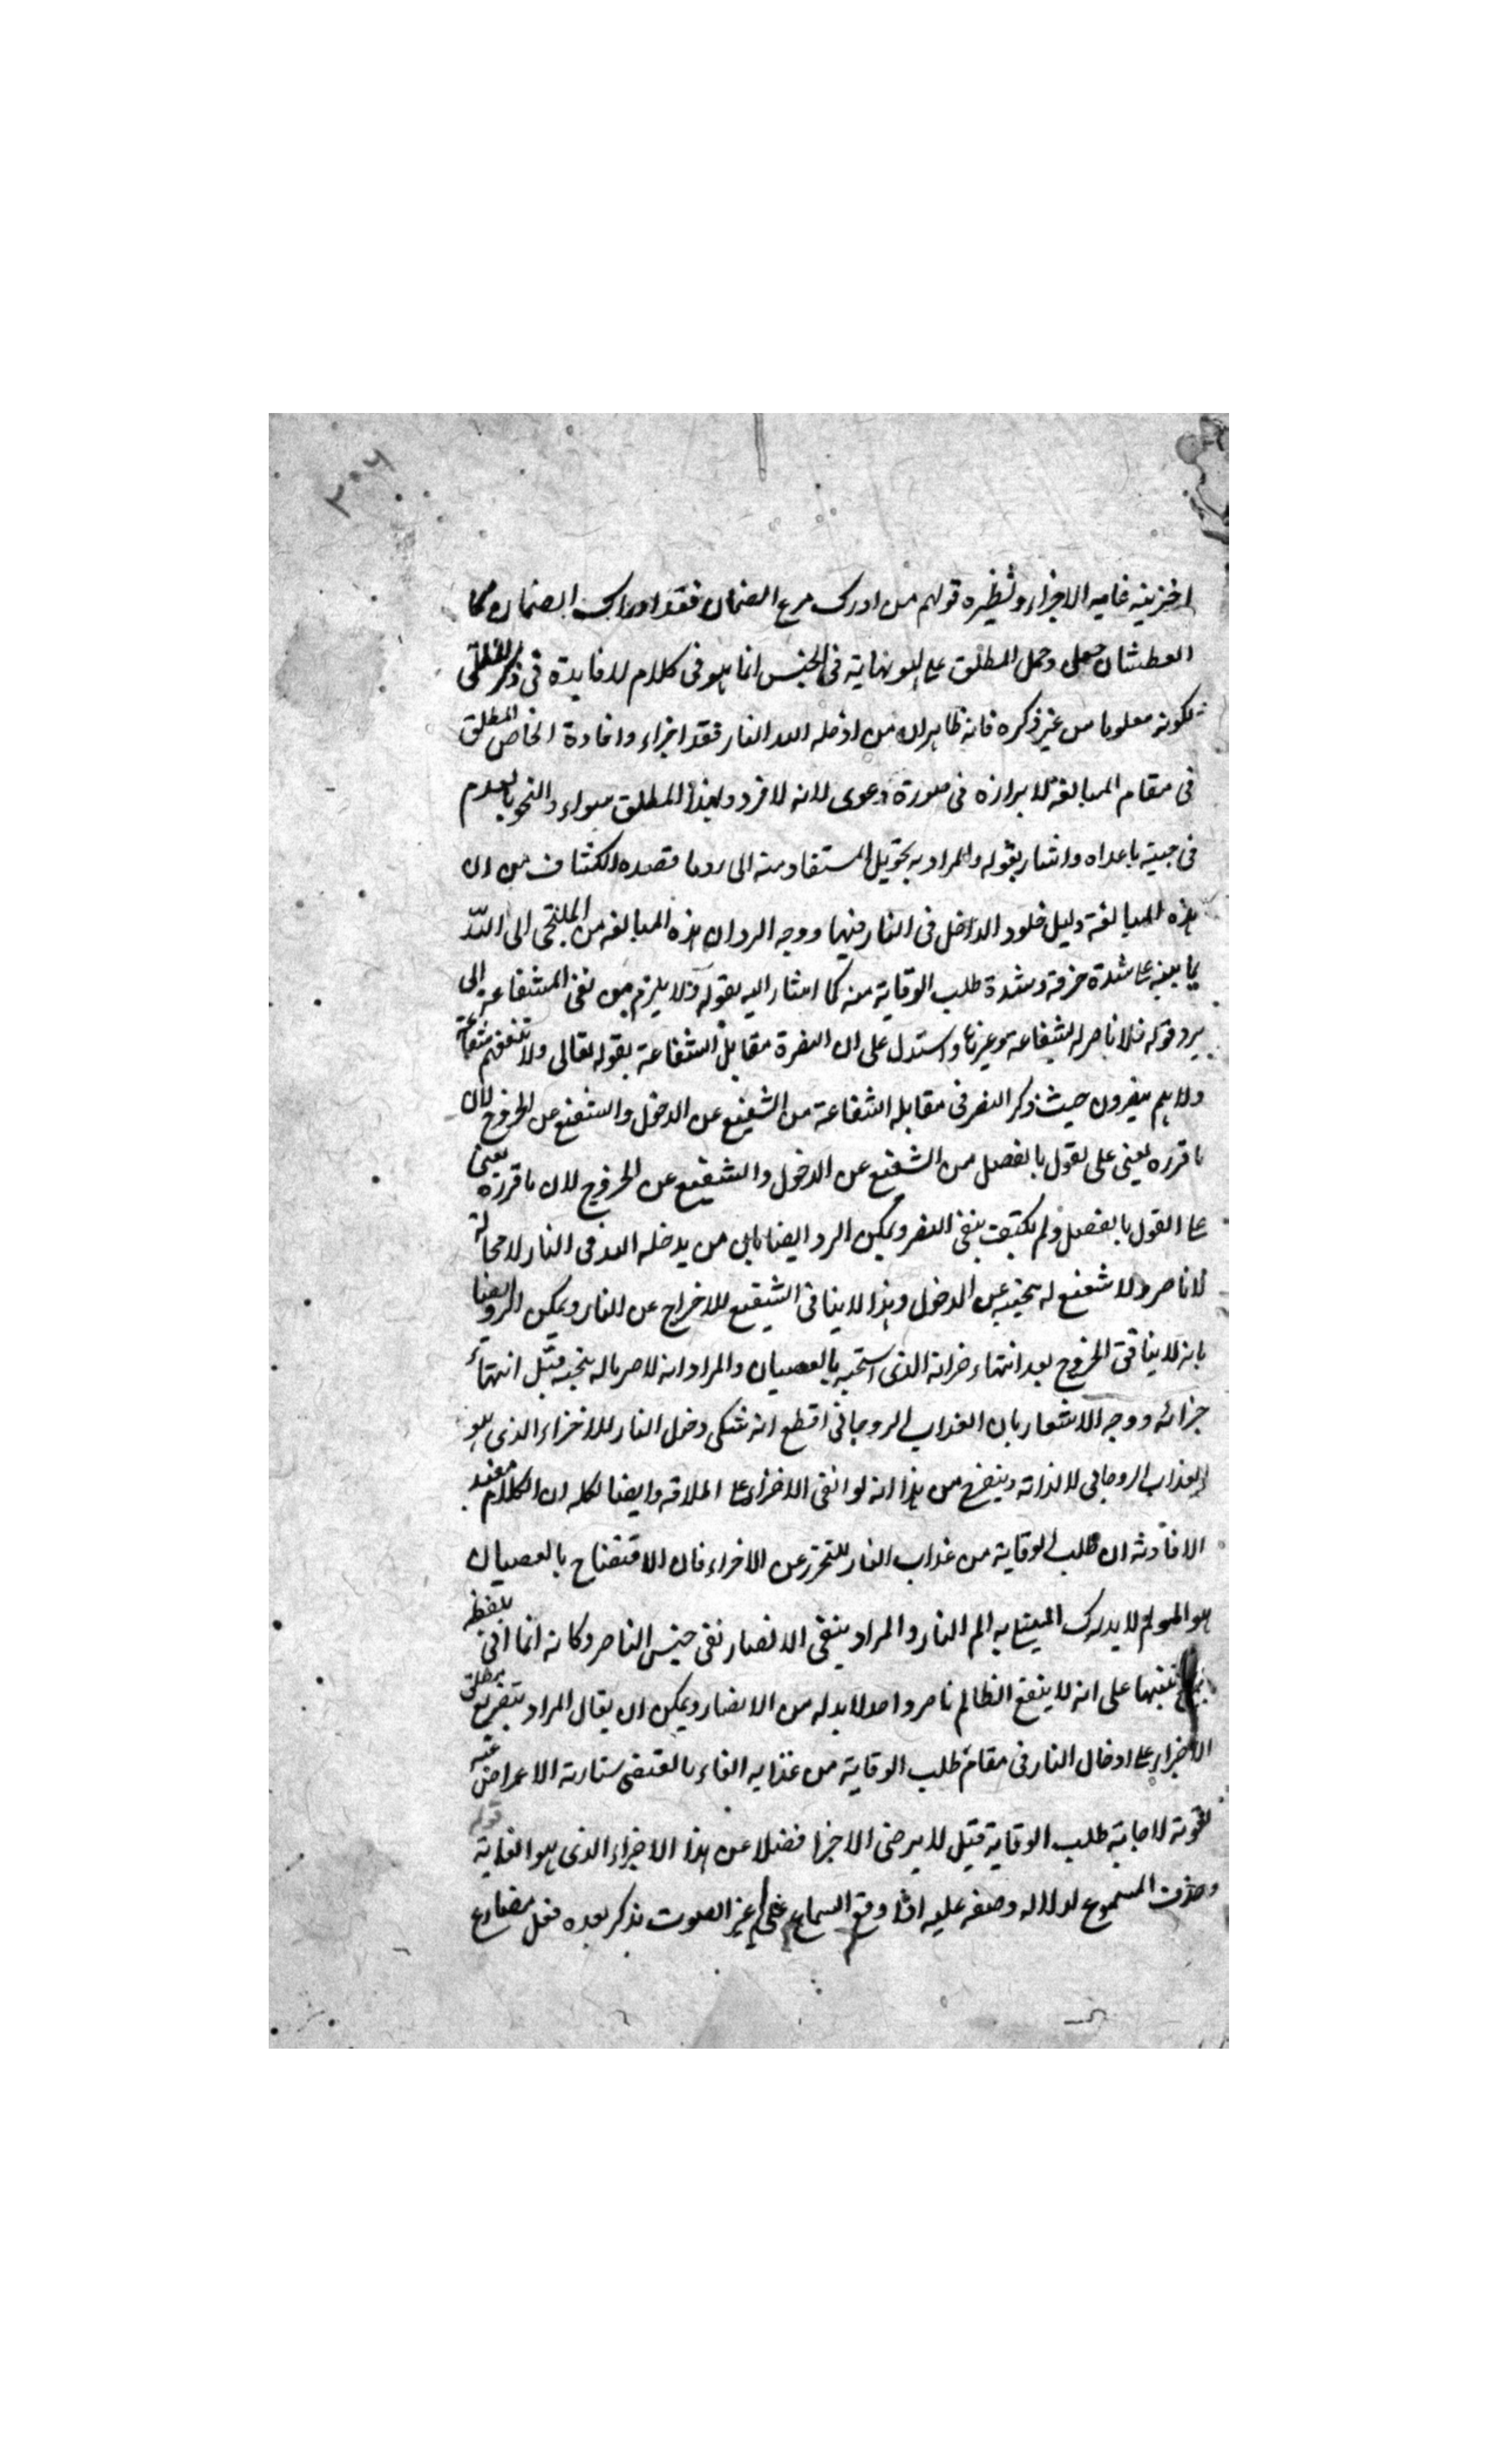 اخزيته غاية الاخزاء ونظيره قولهم من ادرك مرعى الصمان فقد ادرك الصمان كما
وحمل المطلق على ما هو نهاية في الجنس انما هو في كلام لا فايدة في ذكر المطلق
لكونه معلوما من غير ذكره فانه ظاهر ان من ادخله الله النار فقد اخزاه وافادة الخاص المطلق
في مقام المبالغة لابرازه في صورة دعوى لانه لا فرد ولهذا المطلق سواه
في جنبه ما عداه واشار بقوله والمراد به تهويل المستفاد منه الى رد ما قصده الكشاف من ان
هذه المبالغة دليل خلود الداخل في النار فيها ووجه الرد ان هذه المبالغة من الملتجي الى الله
شدة خوفه وشدة طلب الوقاية منه كما اشار اليه بقوله ولا يلزم من نفي الشفاعة الى
يرد قوله فلا ناصر له بشفاعة وغيرها واستدل على ان النصرة مقابل الشفاعة بقوله تعالى ولا تنفعهم شفاعة
ولا هم ينصرون حيث ذكر النصر في مقابلة الشفاعة من الشفيع عن الدخول والشفيع عن الخروج لان
ما قرره يعني على القول بالفصل من الشفيع عن الدخول والشفيع عن الخروج لان ما قرره يعني
على القول بالفصل ولم يكتف بنفي النصر ويمكن الرد ايضا بان من يدخله الله في النار لا محالة
لا ناصر ولا شفيع له ينجيه عن الدخول وهذا لا ينافي الشفيع للاخراج عن النار ويمكن الرد ايضا
بانه لا ينافي الخروج بعد انتهاء جزائه الذي استحقه بالعصيان والمراد انه لا ناصر له ينجيه قبل انتهاء
جزائه ووجه الاشعار بان العذاب الروحاني افظع انه شكى دخول النار للاخزاء الذي هو
العذاب الروحاني لا لذاته هذا انه لو انتفى الاخزاء وايضا لكله ان الكلام مفيد
ان طلب الوقاية من عذاب النار للتحرز عن الاخزاء فان الافتضاح بالعصيان
هو المولم لا يدرك المبتلى به الم النار والمراد بنفي الانصار نفي جنس الناصر وكانه انما اتى بلفظ
تنبيها على انه لا ينفع الظالم ناصر واحد لا بد له من الانصار ويمكن ان يقال المراد بتفريع مطلق
الاخزاء على ادخال النار في مقام طلب الوقاية من عذابه
لاجابة طلب الوقاية قيل لا يرضى الاخزا فضلا عن هذا الاخزاء الذي هو الغاية قوله
وحذف المسموع لدلالة وصفه عليه اذا وقع السماع على غير الصوت يذكر بعده فعل مضارع